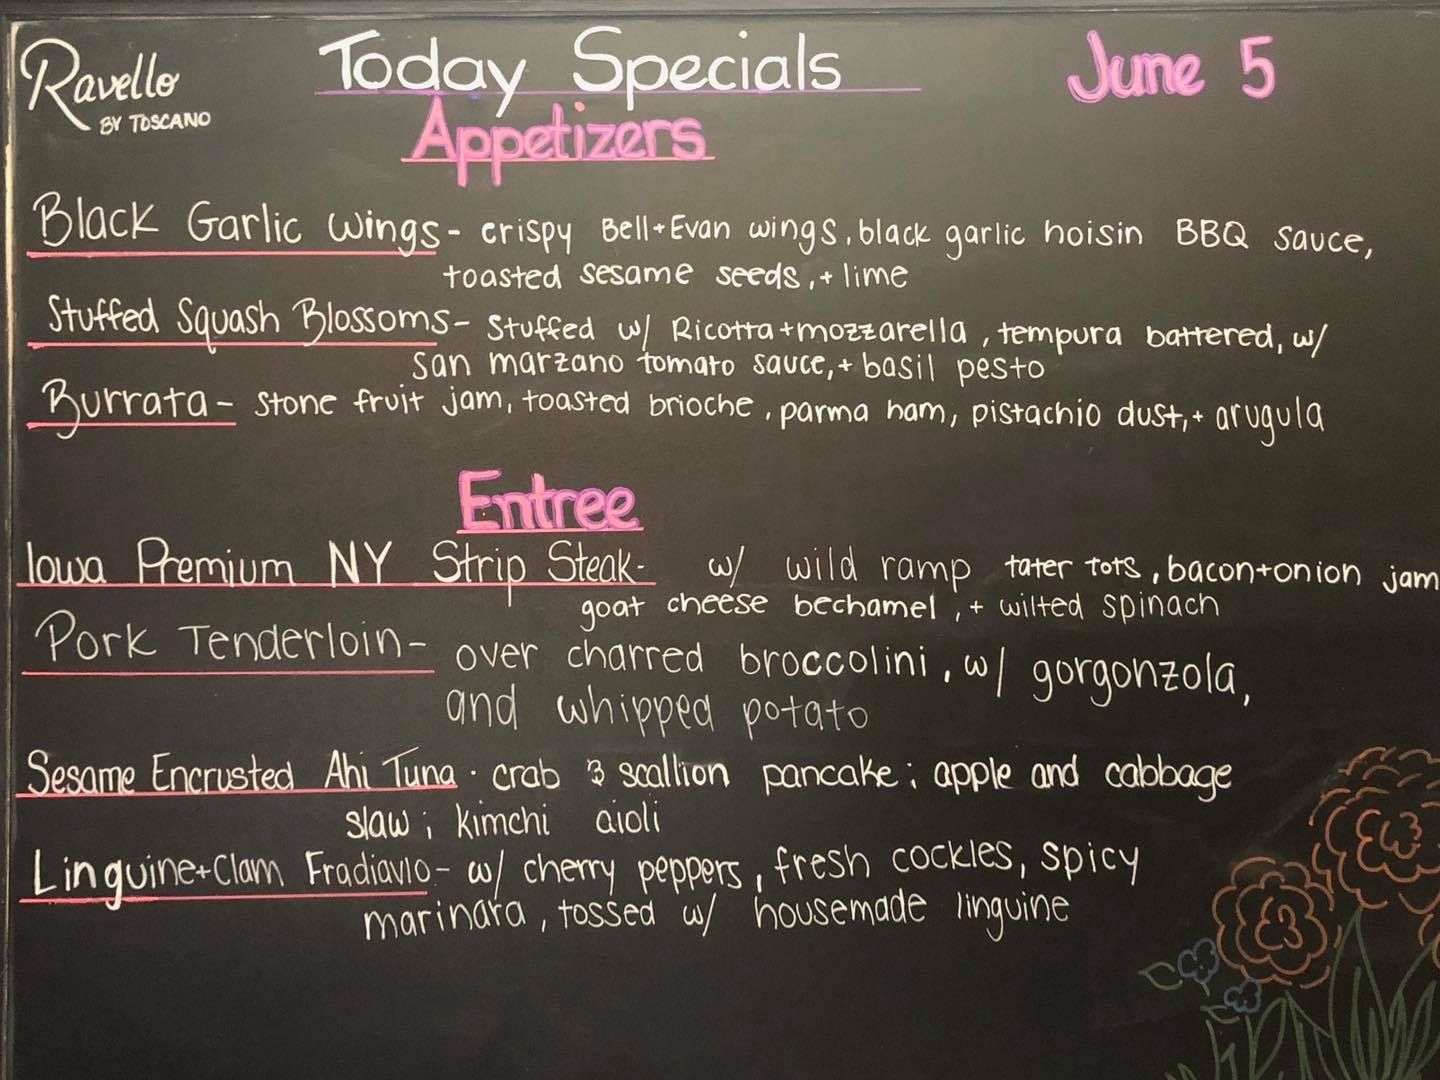 Ravello
BY TOSCANO
Today Specials
June 5
Appetizers
Black Garlic Wings - crispy Bell+Evan wings, black garlic hoisin BBQ sauce,
toasted sesame seeds, + lime
Stuffed Squash Blossoms - Stuffed w/ Ricotta+mozzarella, tempura battered, w/
san marzano tomato sauce, + basil pesto
Burrata - stone fruit jam, toasted brioche, parma ham, pistachio dust, + arugula
Entree
Iowa Premium NY Strip Steak - w/ wild ramp tater tots, bacon+onion jam
goat cheese bechamel, + wilted spinach
Pork Tenderloin - over charred broccolini, w/ gorgonzola,
and whipped potato
Sesame Encrusted Ahi Tuna - crab & scallion pancake; apple and cabbage
slaw; kimchi aioli
Linguine+Clam Fradiavlo - w/ cherry peppers, fresh cockles, spicy
marinara, tossed w/ housemade linguine